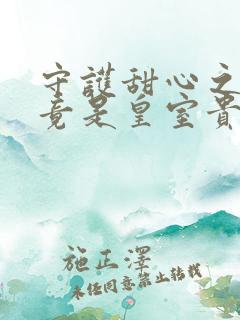 守護甜心之
竟是皇室貴
施正澤
未经同意禁止转载